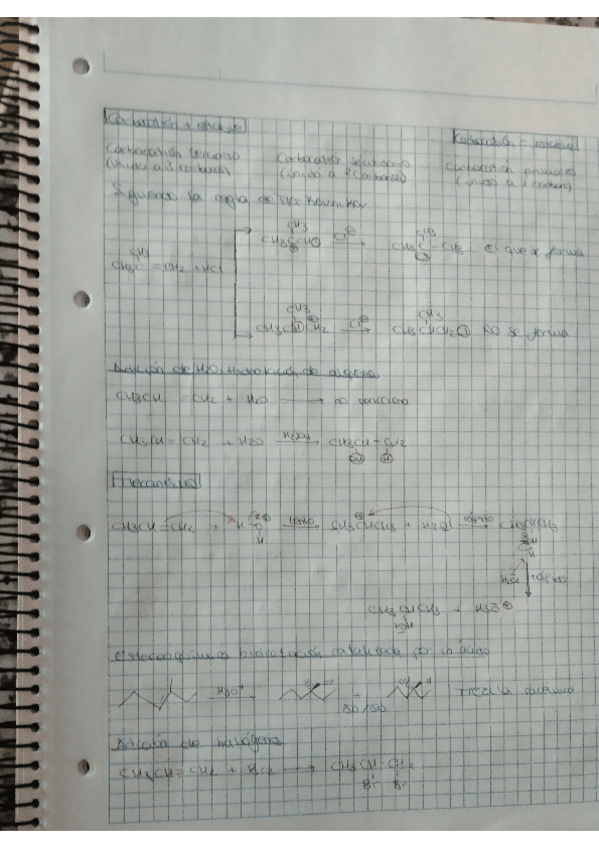 Carbocatión + estable
Carbocatión = estable
Carbocatión terciario
(unido a 3 carbonos)
Carbocatión secundario
(unido a 2 carbonos)
Carbocatión primario
(unido a 1 carbono)
Siguiendo la regla de Markovnikov
CH3
CH3C = CH2 + HCl
CH3
Cl⊖
CH3
CH3C-CH3 El que se forma
CH3
CH2
Cl⊖
CH3
CH3CHCH2 NO se forma
Adición de H2O. Hidratación de alquenos
CH3CH = CH2 + H2O → no reacciona
CH3CH=CH2 + H2O H2SO4 → CH3CH-CH2
Mecanismo
CH3CH=CH2 + H O H lento CH3CHCH3 + H2O rápido CH3CHCH3
H2O rápido
CH3CHCH3 + H3O⊕
OH
Estereoquímica hidratación catalizada por un ácido
H3O⊕ + Mezcla racémica
50/50
Adición de halógenos
CH3CH=CH2 + Br2 → CH3CH-CH2
Br Br